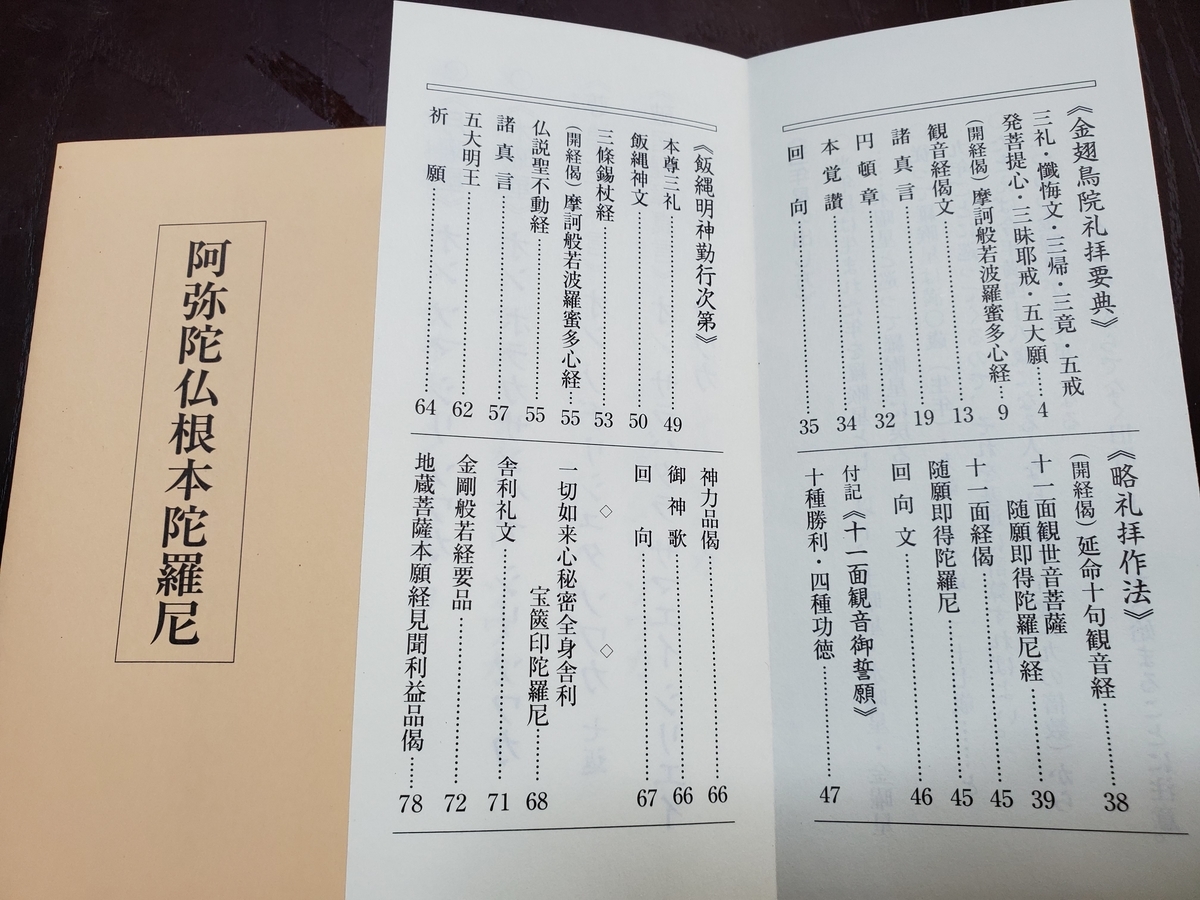 《金翅鳥院礼拝要典》
三礼・懺悔文・三帰・三竟・五戒
発菩提心・三昧耶戒・五大願……4
(開経偈)摩訶般若波羅蜜多心経…9
観音経偈文……13
諸真言……19
円頓章……32
本覚讃……34
回向……35
《略礼拝作法》
(開経偈)延命十句観音経……38
十一面観世音菩薩
随願即得陀羅尼経……39
十一面経偈……45
随願即得陀羅尼……45
回向文……46
付記《十一面観音御誓願》
十種勝利・四種功徳……47
《飯縄明神勤行次第》
本尊三礼……49
飯縄神文……50
三條錫杖経……53
(開経偈)摩訶般若波羅蜜多心経…55
仏説聖不動経……55
諸真言……57
五大明王……62
祈願……64
神力品偈……66
御神歌……66
回向……67
◇ ◇
一切如来心秘密全身舎利
宝篋印陀羅尼……68
舎利礼文……71
金剛般若経要品……72
地蔵菩薩本願経見聞利益品偈……78
阿弥陀仏根本陀羅尼